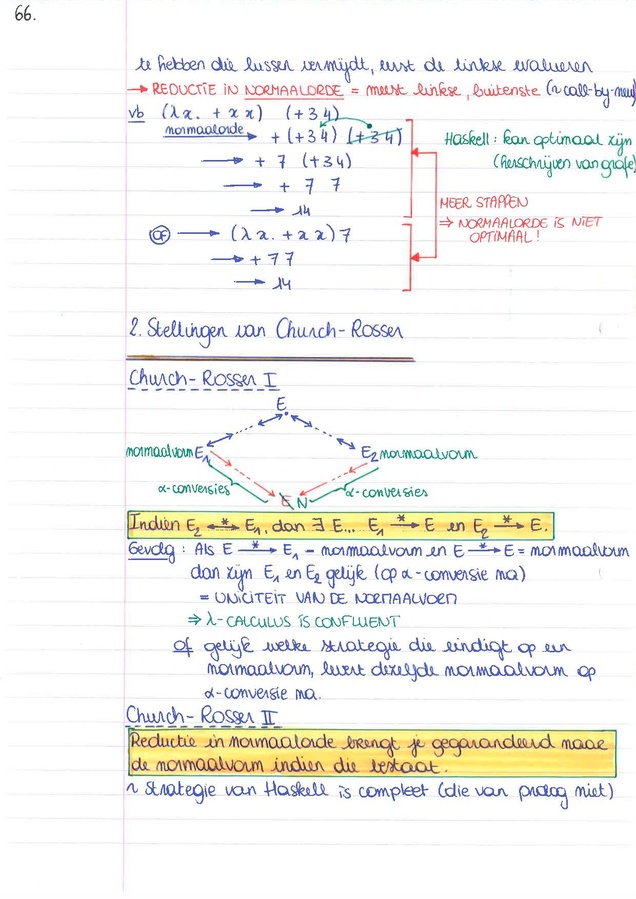 66.
te hebben die lussen vermijdt, eerst de linkse evalueren
→ REDUCTIE IN NORMAALORDE = meest linkse, buitenste (~ call-by-need
vb (λx. + x x) (+ 3 4)
normaalorde → + (+ 3 4) (+ 3 4)
Haskell: kan optimaal zijn
→ + 7 (+ 3 4)
(herschrijven van grafe
→ + 7 7
→ 14
MEER STAPPEN
⇒ NORMAALORDE IS NIET
OPTIMAAL!
OF → (λx. + x x) 7
→ + 7 7
→ 14
2. Stellingen van Church-Rosser
Church-Rosser I
E
normaalvorm E1 E2 normaalvorm
α-conversies α-conversies
E N
Indien E2 <-*-> E1, dan ∃ E... E1 -*-> E en E2 -*-> E.
Gevolg: Als E -*-> E1 - normaalvorm en E -*-> E = normaalvorm
dan zijn E1 en E2 gelijk (op α-conversie na)
= UNICITEIT VAN DE NORMAALVORM
⇒ λ-CALCULUS IS CONFLUENT
Of gelijk welke strategie die eindigt op een
normaalvorm, levert dezelfde normaalvorm op
α-conversie na.
Church-Rosser II
Reductie in normaalorde brengt je gegarandeerd naar
de normaalvorm indien die bestaat.
~ Strategie van Haskell is compleet (die van prolog niet)